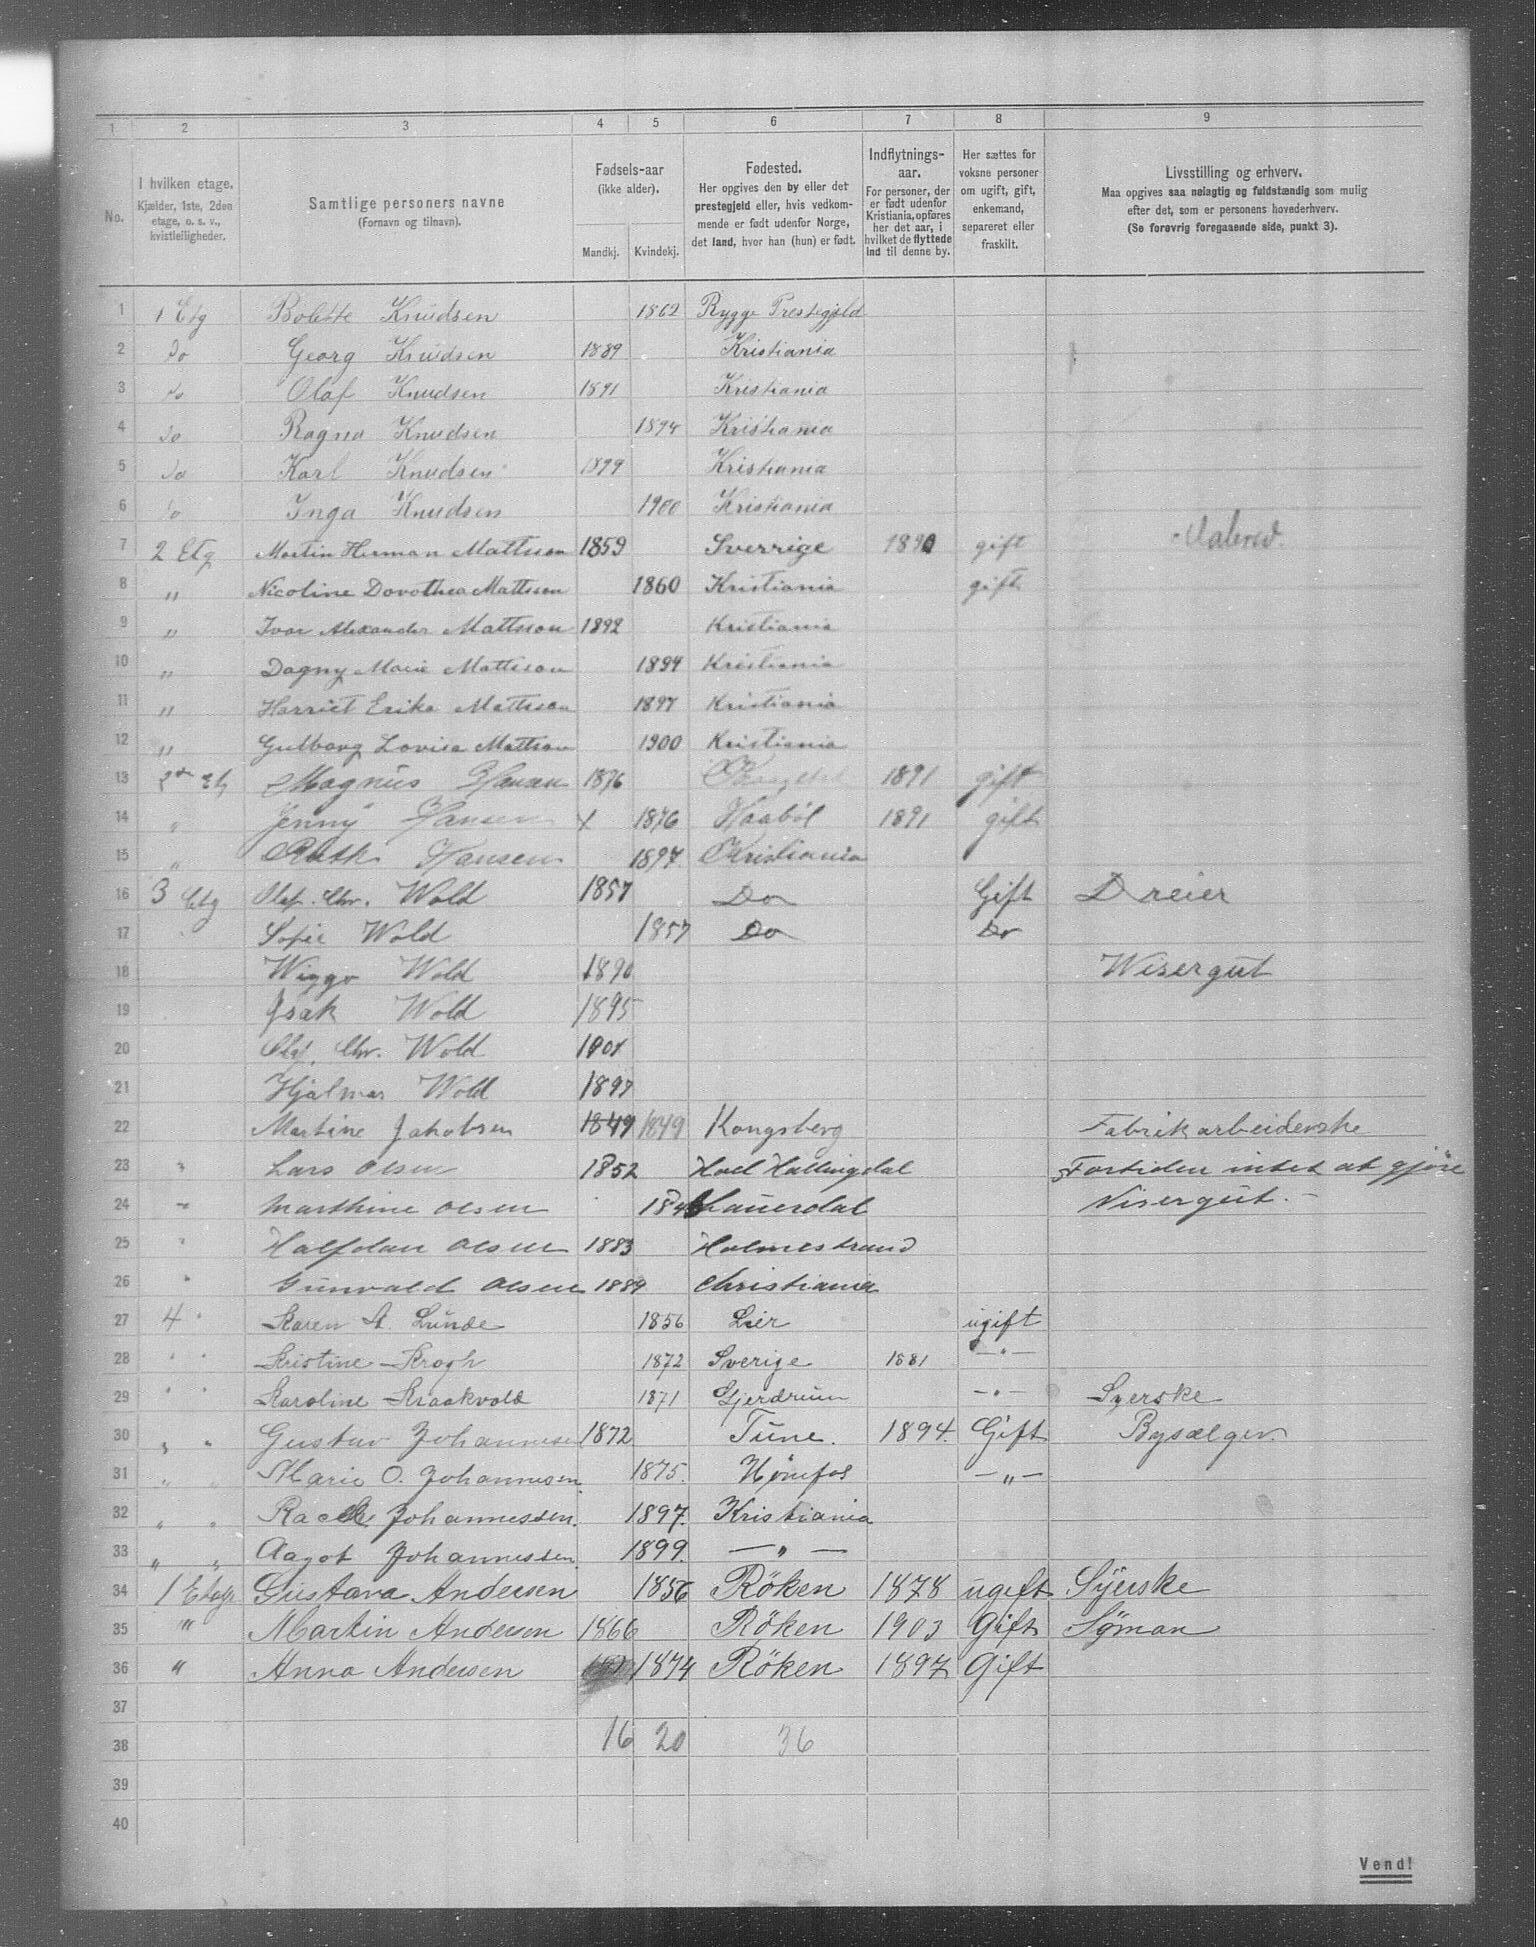 1 2 3 4 5 6 7 8 9
No.
I hvilken etage.
Kjælder, 1ste, 2den
etage, o. s. v.,
kvistleiligheder.
Samtlige personers navne
(Fornavn og tilnavn).
Fødsels-aar
(ikke alder).
Mandkj. Kvindekj.
Fødested.
Her opgives den by eller det
prestegjeld eller, hvis vedkom-
mende er født udenfor Norge,
det land, hvor han (hun) er født.
Indflytnings-
aar.
For personer, der
er født udenfor
Kristiania, opføres
her det aar, i
hvilket de flyttede
ind til denne by.
Her sættes for
voksne personer
om ugift, gift,
enkemand,
separeret eller
fraskilt.
Livsstilling og erhverv.
Maa opgives saa nøiagtig og fuldstændig som mulig
efter det, som er personens hovederhverv.
(Se forøvrig foregaaende side, punkt 3).
1 1 Etg Bolette Knudsen 1862 Rygge Prestegjeld
2 do Georg Knudsen 1889 Kristiania
3 do Olaf Knudsen 1891 Kristiania
4 do Ragna Knudsen 1894 Kristiania
5 do Karl Knudsen 1899 Kristiania
6 do Inga Knudsen 1900 Kristiania
7 2 Etg Martin Herman Mattsson 1859 Sverrige 1890 gift
8 " Nicoline Dorothea Mattsson 1860 Kristiania gift
9 " Ivar Alexander Mattsson 1892 Kristiania
10 " Dagny Marie Mattsson 1894 Kristiania
11 " Harriet Erika Mattsson 1897 Kristiania
12 " Gulborg Lovisa Mattsson 1900 Kristiania
13 2den Etg Magnus Hansen 1876 1891 gift
14 " Jenny Hansen x 1876 Haabøl 1891 gift
15 " Ruth Hansen 1897. Kristiania
16 3 Etg Olaf. Chr. Wold 1857 Do Gift Dreier
17 Sofie Wold 1857 Do Do
18 Wiggo Wold 1890 Wisergut
19 Isak Wold 1895
20 Olaf. Chr. Wold 1901
21 Hjalmar Wold 1897
22 Martine Jakobsen 1849 1849 Kongsberg Fabrikarbeiderske
23 " Lars Olsen 1852 Hoel Hallingdal Fortiden intet at gjøre
24 " Marthine Olsen Lauerdal Visergut. -
25 " Halfdan Olsen 1883 Holmestrand
26 " Gunvald Olsen 1889 Christiania
27 4 " Karen A. Lunde 1856 Lier ugift
28 " " Kristine Krogh 1872 Sverige 1881 - " -
29 " " Karoline Kraakvold 1871 Gjerdrum - " - Syerske
30 " " Gustav Johannesen 1872 Tune. 1894. Gift Bysælger.
31 " " Marie O. Johannesen. 1875. Hønefos - " -
32 " " Johannessen. 1897. Kristiania
33 " " Aagot Johannessen. 1899. - " -
34 1 Etage Gustava Andersen 1856 Røken 1878 ugift Syerske
35 " Martin Andersen 1866 Røken 1903 Gift Søman
36 " Anna Andersen 1874 Røken 1897 Gift
37
38 16 20 36
39
40
Vend!